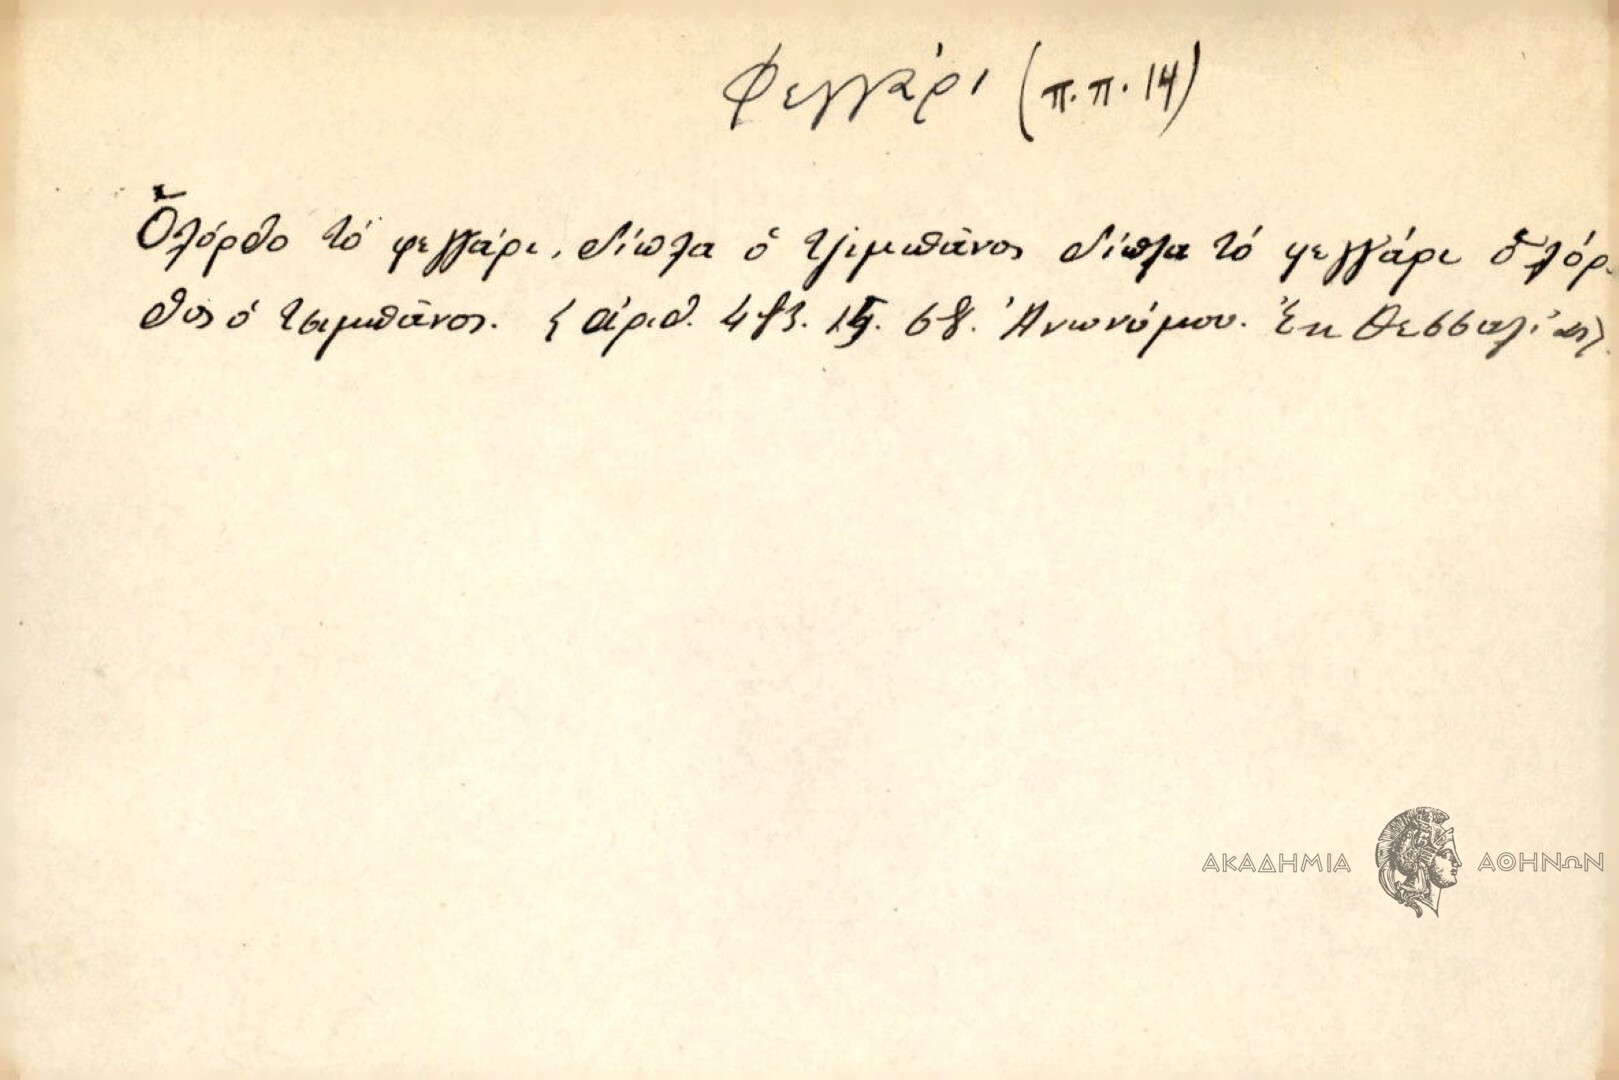 Φεγγάρι (π.π. 14)
Ὁλόρθο τό φεγγάρι, δίπλα ὁ τζιμπᾶνος δίπλα τό φεγγάρι ὁλόρ-
θος ὁ τσιμπᾶνος. ἀριθ. 68. Ἀνωνύμου. Ἐκ Θεσσαλίας).
ΑΚΑΔΗΜΙΑ ΑΘΗΝΩΝ